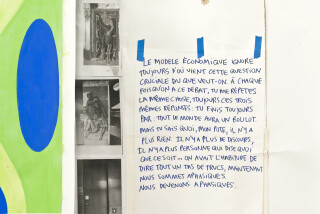 LE MODELE ÉCONOMIQUE IGNORE
TOUJOURS D'OÙ VIENT CETTE QUESTION
CRUCIALE DU QUE VEUT-ON. À CHAQUE
FOIS QU'ON A CE DÉBAT, TU ME RÉPÈTES
LA MÊME CHOSE, TOUJOURS CES TROIS
MÊMES RÉPONSES. TU FINIS TOUJOURS
PAR : TOUT LE MONDE AURA UN BOULOT.
MAIS TU SAIS QUOI, MON POTE, IL N'Y A
PLUS RIEN. IL N'Y A PLUS DE DISCOURS,
IL N'Y A PLUS PERSONNE QUI DISE QUOI
QUE CE SOIT... ON AVAIT L'HABITUDE DE
DIRE TOUT UN TAS DE TRUCS, MAINTENANT
NOUS SOMMES APHASIQUES
NOUS DEVENONS APHASIQUES.